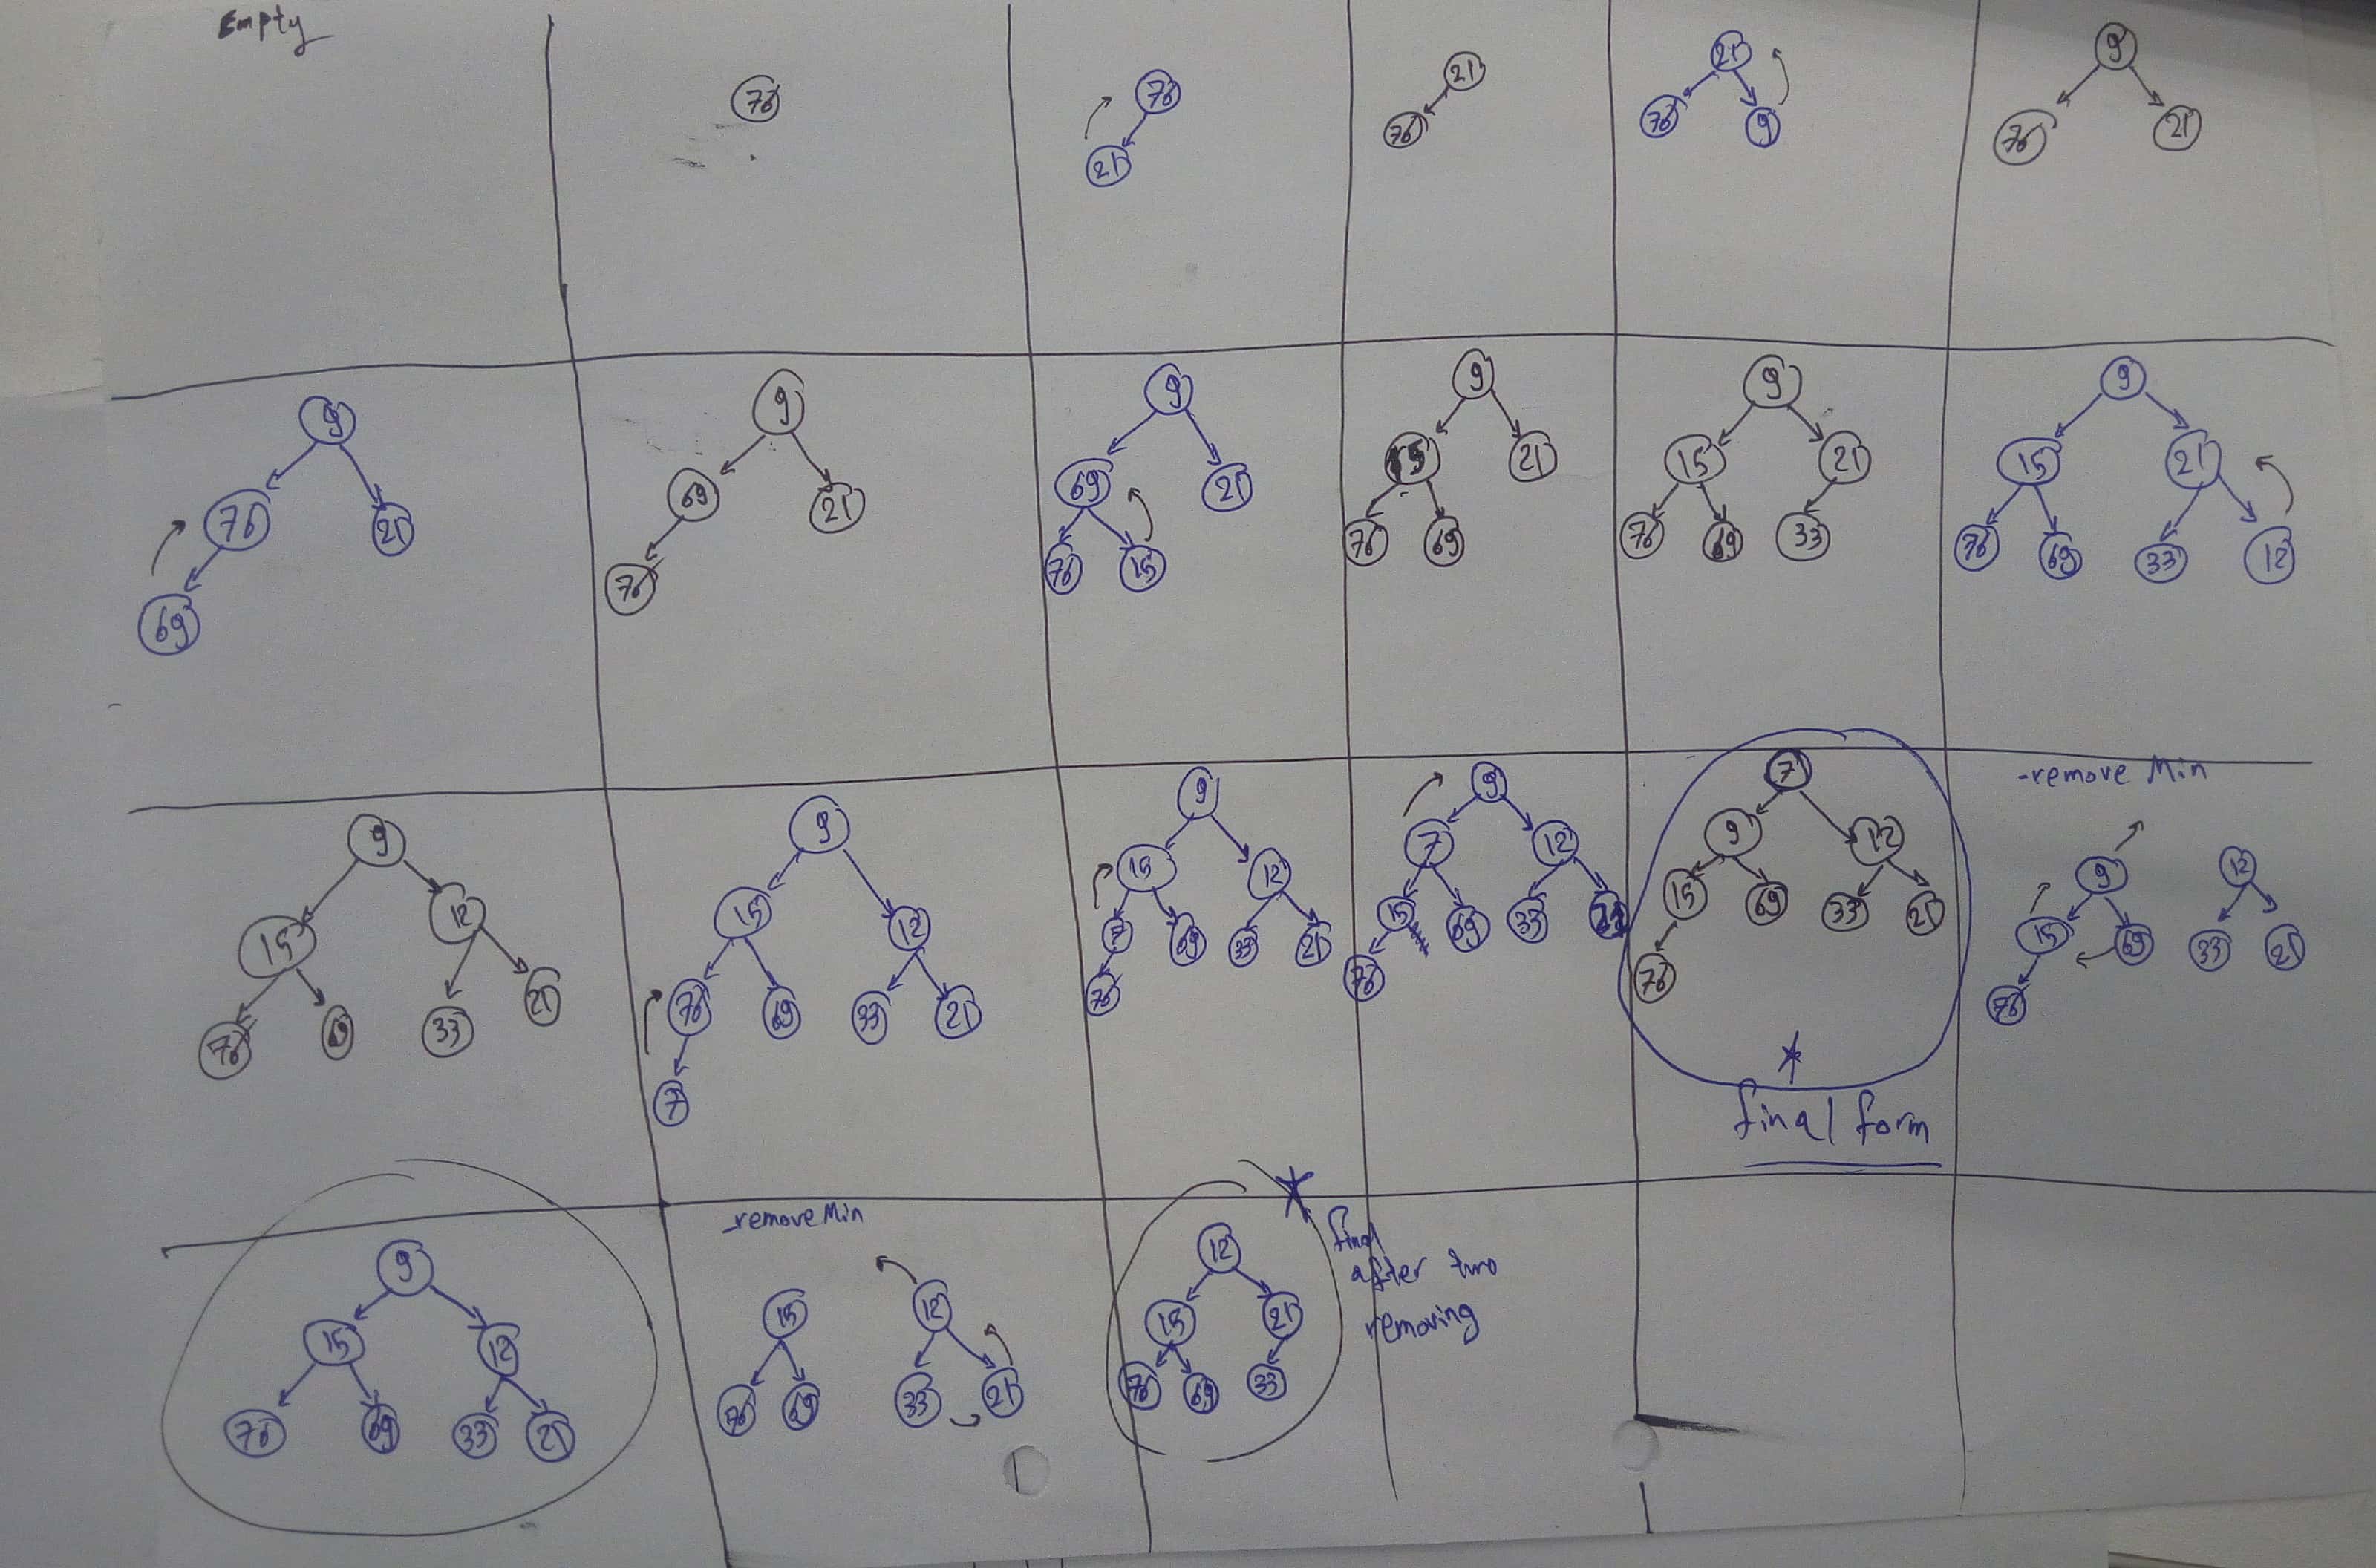 Empty
76
76
21
21
76
21
76 9
9
76 21
9
76 21
69
9
69 21
76
9
69 21
76 15
9
15 21
76 69
9
15 21
76 69 33
9
15 21
76 69 33 12
9
15 12
76 69 33 21
9
15 12
76 69 33 21
7
9
15 12
7 69 33 21
76
9
7 12
15 69 33 21
76
7
9 12
15 69 33 21
76
final form
-remove Min
9 12
15 69 33 21
76
9
15 12
76 69 33 21
-remove Min
15 12
76 69 33 21
12
15 21
76 69 33
final
after two
removing